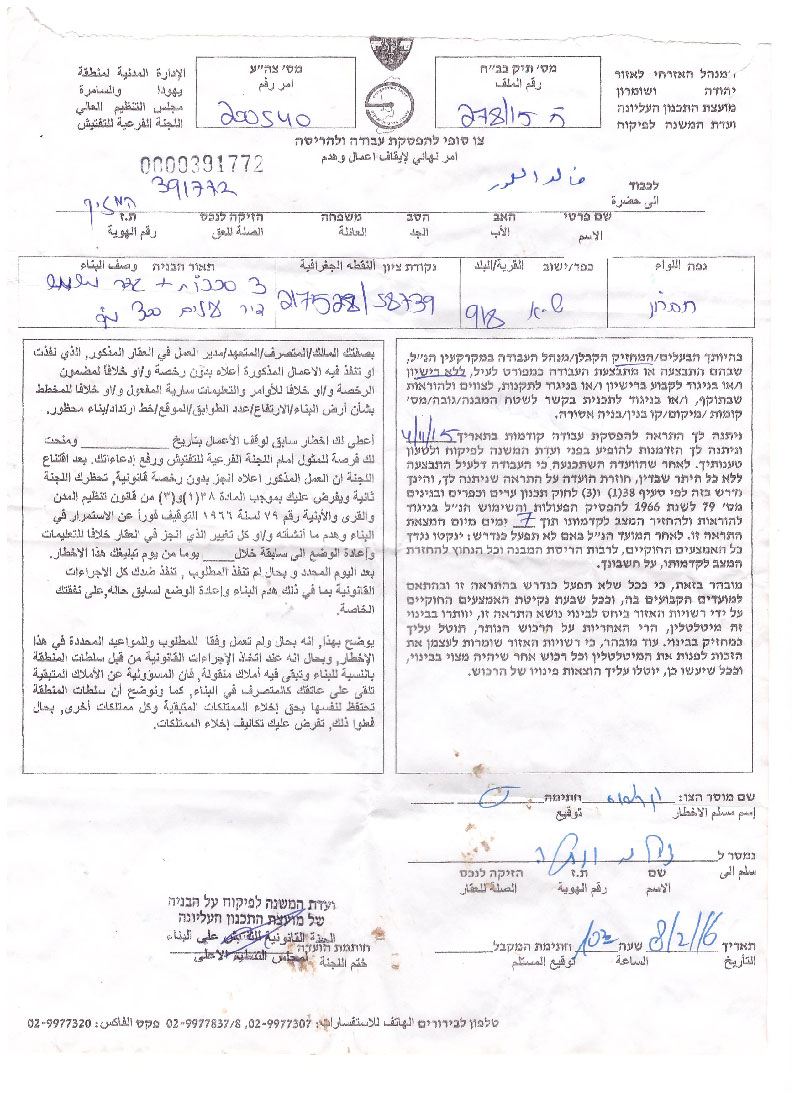 המנהל האזרחי לאזור
יהודה ושומרון
מועצת התכנון העליונה
ועדת המשנה לפיקוח
מס׳ תיק בב״ח
رقم الملف
ח 278/15
מס׳ צה״ע
امر رقم
200540
الإدارة المدنية لمنطقة
يهودا والسامرة
مجلس التنظيم العالي
اللجنة الفرعية للتفتيش
צו סופי להפסקת עבודה ולהריסה
امر نهائي لإيقاف اعمال وهدم
0000391772
391772
לכבוד
الى حضرة
המחזיק
שם פרטי האב הסב משפחה הזיקה לנכס ת.ז
الاسم الأب الجد العائلة الصلة للعق رقم الهوية
נפה اللواء
חברון
כפר/ישוב القرية/البلد
נקודת ציון النقطه الجغرافية
217528/58739
תאור הבניה وصف البناء
3 סככות +
300
בהיותך הבעלים/המחזיק הקבלן/מנהל העבודה במקרקעין הנ״ל,
שבהם התבצעה או מתבצעת העבודה כמפורט לעיל, ללא רישיון
ו/או בניגוד לקבוע ברישיון ו/או בניגוד לתקנות, לצווים ולהוראות
שבתוקף, ו/או בניגוד לתכנית בקשר לשטח המבנה/גובה/מס׳
קומות/מיקום/קו בנין/בניה אסורה.
ניתנה לך התראה להפסקת עבודה קודמות בתאריך 4/11/15
וניתנה לך הזדמנות להופיע בפני ועדת המשנה לפיקוח ולטעון
טענותיך. לאחר שהוועדה השתכנעה כי העבודה דלעיל התבצעה
ללא כל היתר שבדין, חוזרת הועדה על התראה שניתנה לך, והינך
נדרש בזה לפי סעיף 38(1) ו(3) לחוק תכנון ערים וכפרים ובניינים
מס׳ 79 לשנת 1966 להפסיק הפעולות והשימוש הנ״ל בניגוד
להוראות ולהחזיר המצב לקדמותו תוך 7 ימים מיום המצאת
התראה זו. לאחר המועד הנ״ל באם לא תפעל כנדרש: ינקטו נגדך
כל האמצעים החוקיים, לרבות הריסת המבנה וכל הנחוץ להחזרת
המצב לקדמותו, על חשבונך.
מובהר בזאת, כי ככל שלא תפעל כנדרש בהתראה זו ובהתאם
למועדים הקבועים בה, וככל שבעת נקיטת האמצעים החוקיים
על ידי רשויות האזור ביחס לבינוי נושא התראה זו, יוותרו בבינוי
זה מיטלטלין, הרי האחריות על הרכוש הנותר, תוטל עליך
כמחזיק בבינוי. עוד מובהר, כי רשויות האזור שומרות לעצמן את
הזכות לפנות את המיטלטלין וכל רכוש אחר שיהיה מצוי בבינוי,
וככל שיעשו כן, יוטלו עליך הוצאות פינויו של הרכוש.
بصفتك المالك/المتصرف/المتعهد/مدير العمل في العقار المذكور, الذي نفذت
او تنفذ فيه الاعمال المذكورة اعلاه بدون رخصة و/او خلافا لمضمون
الرخصة و/او خلافا للأوامر والتعليمات سارية المفعول و/او خلافا للمخطط
بشأن أرض البناء/الارتفاع/عدد الطوابق/الموقع/خط ارتداد/بناء محظور.
أعطي لك اخطار سابق لوقف الأعمال بتاريخ ________ ومنحت
لك فرصة للمثول امام اللجنة الفرعية للتفتيش ورفع إدعاءاتك. بعد اقتناع
اللجنة ان العمل المذكور اعلاه انجز بدون رخصة قانونية, تحظرك اللجنة
ثانية ويفرض عليك بموجب المادة ٣٨(١)و(٣) من قانون تنظيم المدن
والقرى والأبنية رقم ٧٩ لسنة ١٩٦٦ التوقيف فوراً عن الاستمرار في
البناء وهدم ما انشأته و/او كل تغيير الذي انجز في العقار خلافا للتعليمات
وإعادة الوضع الى سابقة خلال____ يوما من يوم تبليغك هذا الاخطار.
بعد اليوم المحدد و بحال لم تنفذ المطلوب , تنفذ ضدك كل الاجراءات
القانونية بما في ذلك هدم البناء وإعادة الوضع لسابق حاله,على نفقتك
الخاصة.
يوضح بهذا, انه بحال ولم تعمل وفقا للمطلوب وللمواعيد المحددة في هذا
الإخطار, وبحال انه عند اتخاذ الإجراءات القانونية من قبل سلطات المنطقة
بالنسبة للبناء وتبقى فيه أملاك منقولة, فان المسؤولية عن الأملاك المتبقية
تلقى على عاتقك كالمتصرف في البناء, كما ونوضح أن سلطات المنطقة
تحتفظ لنفسها بحق إخلاء الممتلكات المتبقية وكل ممتلكات أخرى, بحال
فعلوا ذلك, تفرض عليك تكاليف إخلاء الممتلكات.
שם מוסר הצו: חתימה
إسم مسلم الاخطار توقيع
נמסר ל
سلم الى
שם ת.ז הזיקה לנכס
الاسم رقم الهوية الصلة للعقار
תאריך 8/2/16 שעה חתימת המקבל
التاريخ الساعة توقيع المستلم
ועדת המשנה לפיקוח על הבניה
של מועצת התכנון העליונה
اللجنة القانونية للتفتيش على البناء
חותמת הועדה
لمجلس التنظيم الاعلى
ختم اللجنة
טלפון לבירורים الهاتف للاستفسارات: 02-9977307, 02-9977837/8 פקס الفاكس: 02-9977320